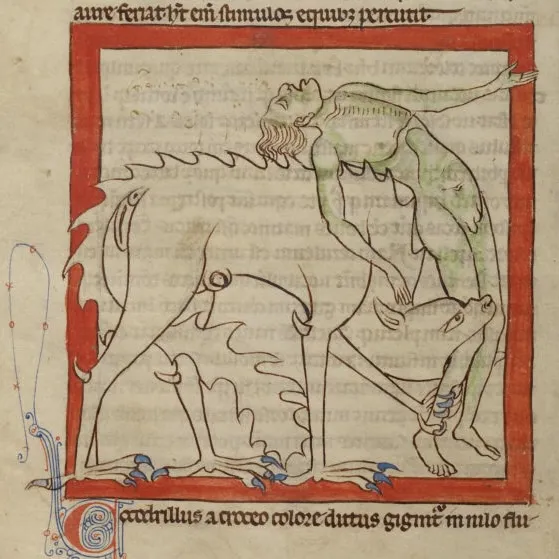 aure feriat. ht̄ em̄ stimulos equibꝫ percutit.
Cocodrillus a croceo colore dictus gignit᷑ in nilo flu-